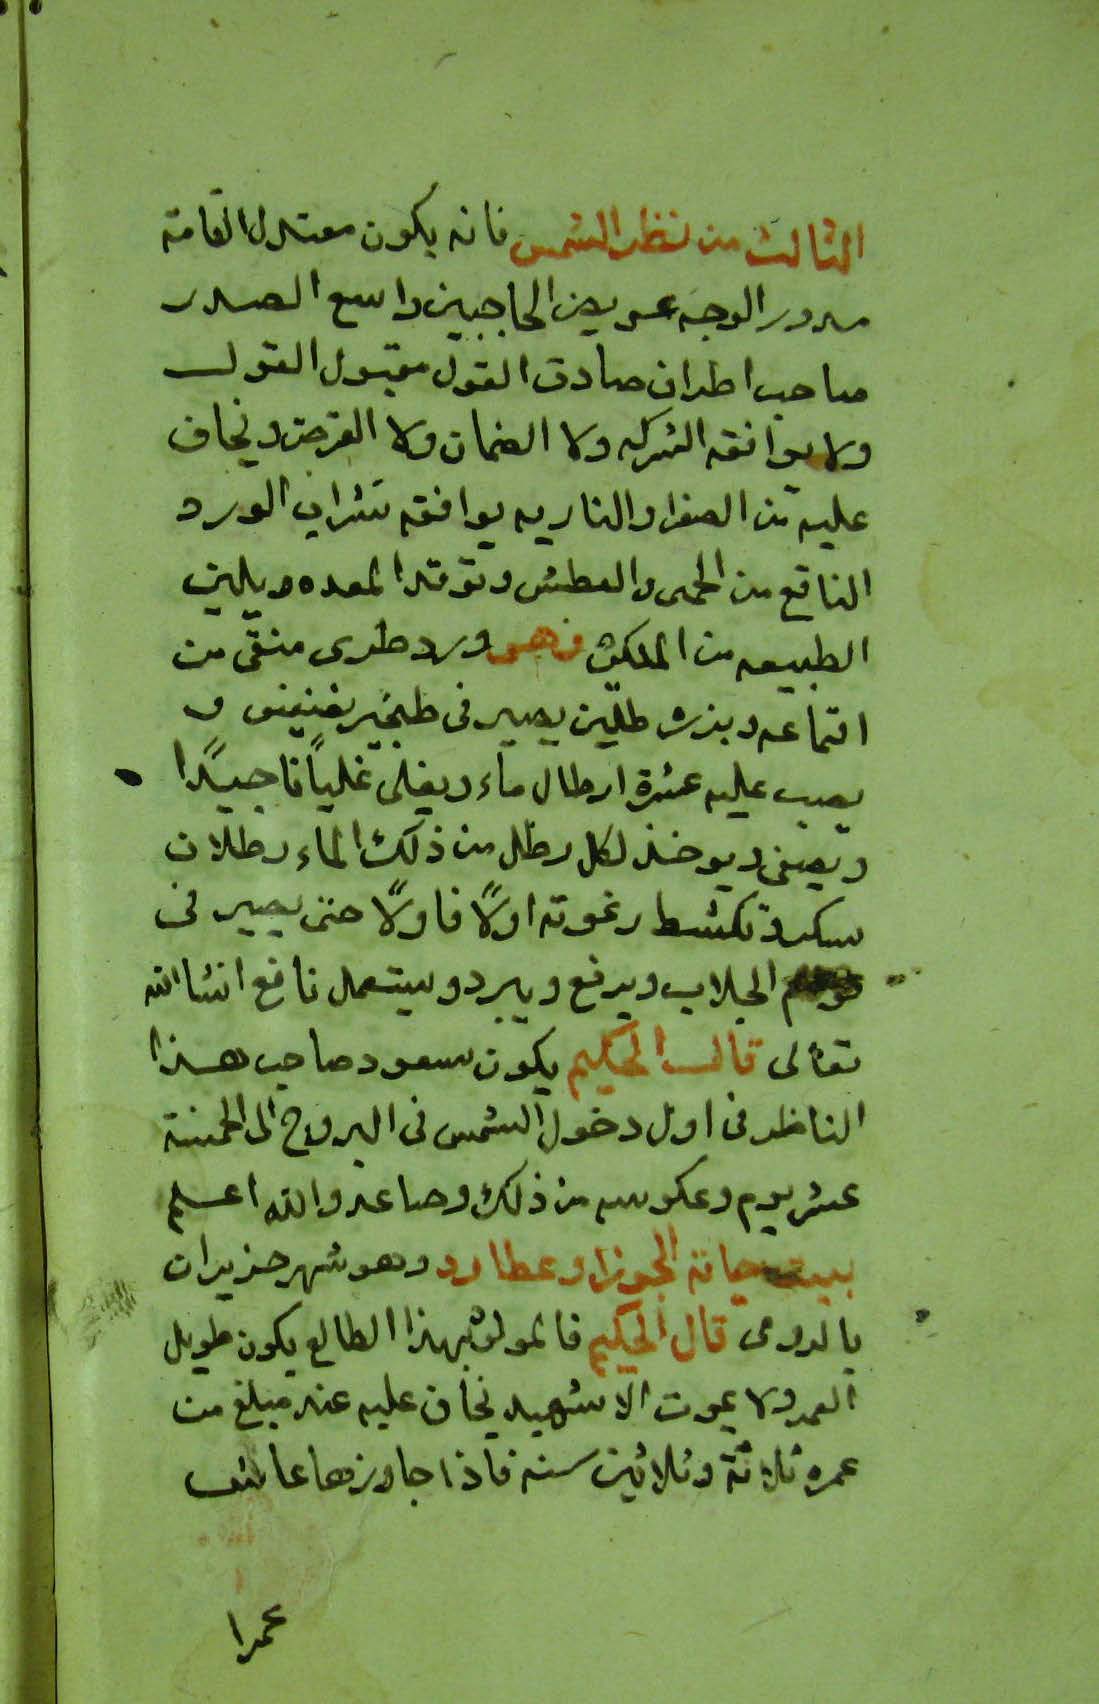 الثالث من نظر الشمس فانه يكون معتدل القامه
مدور الوجه عريض الحاجبين واسع الصدر
صاحب اطراف صادق القول مقبول القول
ولا يوافقه الشركه ولا الضمان ولا القرض ويخاف
عليه من الصفرا والناريه يوافقه شراب الورد
النافع من الحمى والعطش وتوقد المعده ويلين
الطبيعه من المكث وهو ورد طرى منقى من
اقماعه وبذره رطلين يصير فى طنجير نضيف و
يصب عليه عشرة ارطال ماء ويغلى غلياً فاجيدًا
ويصفى ويوخذ لكل رطل من ذلك الماء رطلان
سكر وتكشط رغوته اولًا فاولًا حتى يصير فى
قوام الجلاب ويرفع ويبرد ويستعمل نافع انشا الله
تعالى قال الحكيم يكون سعود صاحب هذا
الناظر فى اول دخول الشمس فى البروج الى الخمسة
عشر يوم وعكوسه من ذلك وصاعد والله اعلم
بيت حياته الجوزا وعطارد وهو شهر حزيران
بالرومى قال الحكيم فالمولود بهذا الطالع يكون طويل
العمر ولا يموت الا شهيد يخاف عليه عند مبلغ من
عمره ثلاثة وثلاثين سنه فاذا جاوزها عاش
عمرا